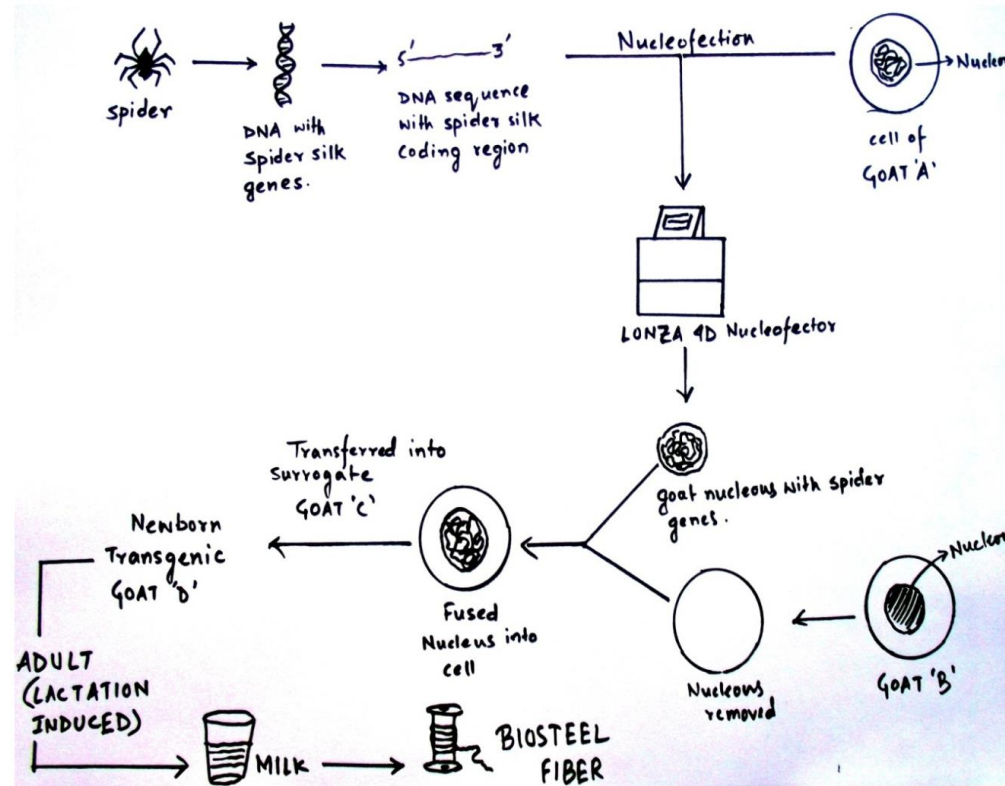 Spider
DNA with
Spider silk
genes.
5' 3'
DNA sequence
with spider silk
coding region
Nucleofection
cell of
GOAT 'A'
LONZA 4D Nucleofector
goat nucleous with spider
genes.
GOAT 'B'
Nucleous
removed
Fused
Nucleus into
cell
Transferred into
surrogate
GOAT 'C'
Newborn
Transgenic
GOAT 'D'
ADULT
(LACTATION
INDUCED)
MILK
BIOSTEEL
FIBER